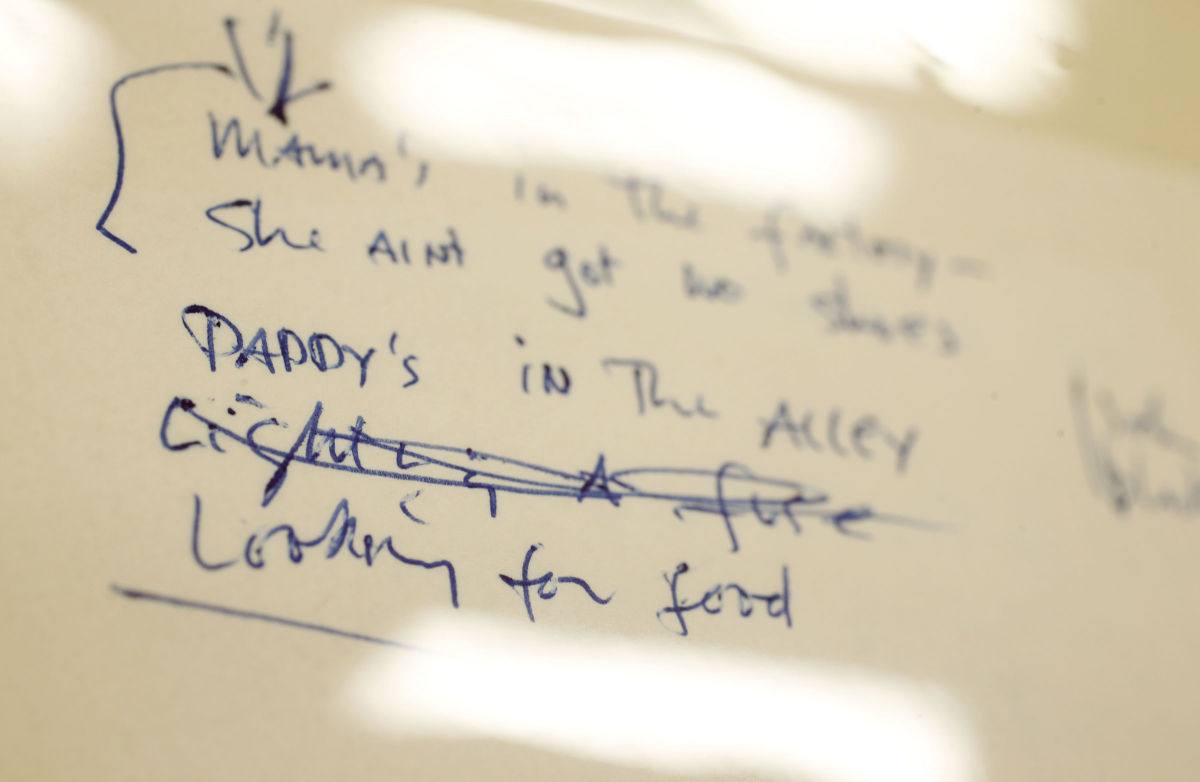 Mama's in the factory –
She Aint got no shoes
DADDY's iN The AlleY
Lighting A fire
Looking for food